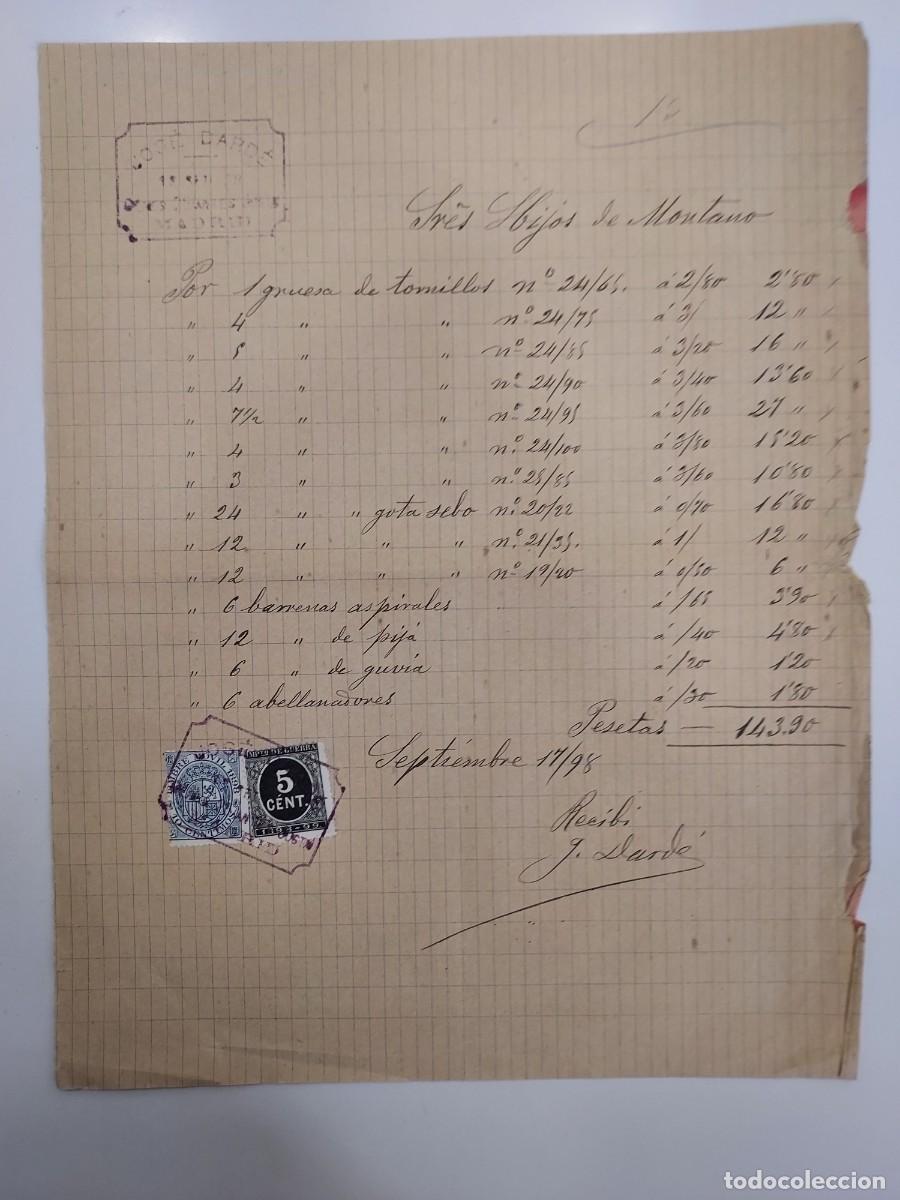 JOSÉ DARDÉ
MADRID
Srēs Hijos de Montano
Por 1 gruesa de tornillos nº 24/65. á 2/80 2'80
" 4 " " nº 24/75 á 3/ 12 "
" 5 " " nº 24/85 á 3/20 16 "
" 4 " " nº 24/90 á 3/40 13'60
" 7½ " " nº 24/95 á 3/60 27 "
" 4 " " nº 24/100 á 3/80 15'20
" 3 " " nº 25/85 á 3/60 10'80
" 24 " " gota sebo nº 20/22 á 0/70 16'80
" 12 " " " nº 21/35. á 1/ 12 "
" 12 " " " nº 19/20 á 0/50 6 "
" 6 barrenas aspirales á /65 3'90
" 12 " de pijá á /40 4'80
" 6 " de guvia á /20 1'20
" 6 abellanadores á /30 1'80
Pesetas — 143.90
Septiembre 17/98
TIMBRE MOVIL 1898
10 CENTIMOS
IMPTO DE GUERRA
5
CENT.
1898-99
Recibi
J. Dardé
todocoleccion